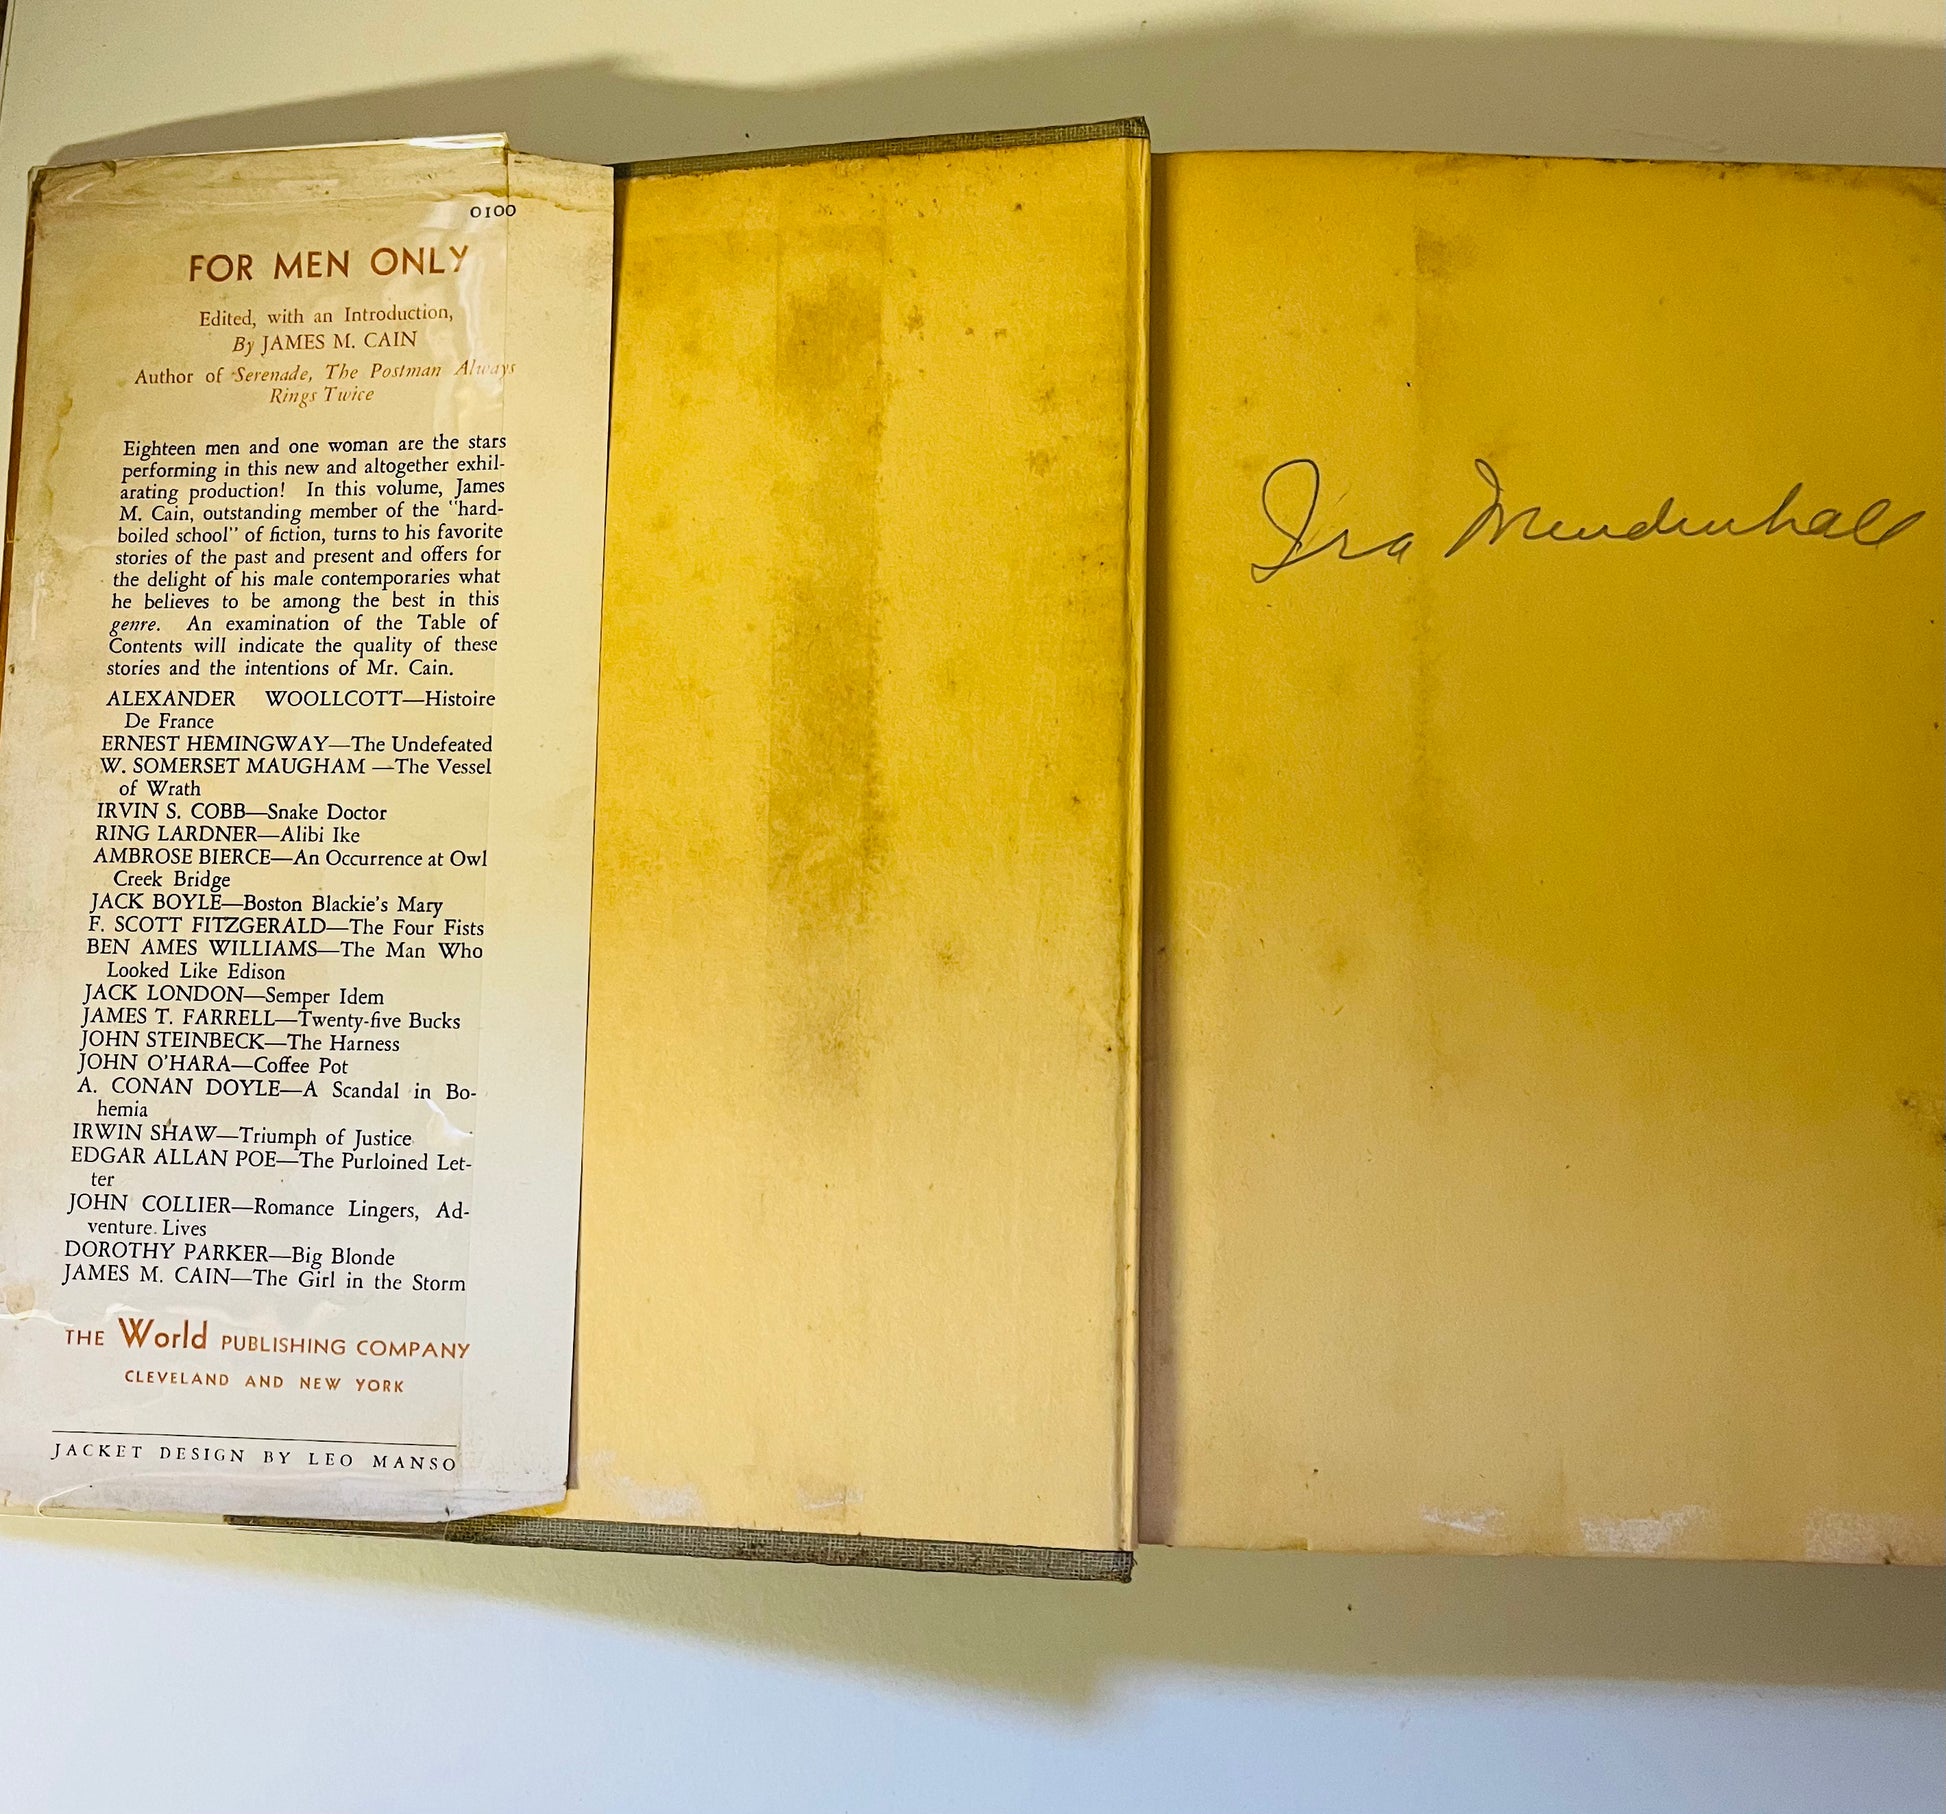 0100
FOR MEN ONLY
Edited, with an Introduction,
By JAMES M. CAIN
Author of Serenade, The Postman Always
Rings Twice
Eighteen men and one woman are the stars
performing in this new and altogether exhil-
arating production! In this volume, James
M. Cain, outstanding member of the "hard-
boiled school" of fiction, turns to his favorite
stories of the past and present and offers for
the delight of his male contemporaries what
he believes to be among the best in this
genre. An examination of the Table of
Contents will indicate the quality of these
stories and the intentions of Mr. Cain.
ALEXANDER WOOLLCOTT—Histoire
De France
ERNEST HEMINGWAY—The Undefeated
W. SOMERSET MAUGHAM —The Vessel
of Wrath
IRVIN S. COBB—Snake Doctor
RING LARDNER—Alibi Ike
AMBROSE BIERCE—An Occurrence at Owl
Creek Bridge
JACK BOYLE—Boston Blackie's Mary
F. SCOTT FITZGERALD—The Four Fists
BEN AMES WILLIAMS—The Man Who
Looked Like Edison
JACK LONDON—Semper Idem
JAMES T. FARRELL—Twenty-five Bucks
JOHN STEINBECK—The Harness
JOHN O'HARA—Coffee Pot
A. CONAN DOYLE—A Scandal in Bo-
hemia
IRWIN SHAW—Triumph of Justice
EDGAR ALLAN POE—The Purloined Let-
ter
JOHN COLLIER—Romance Lingers, Ad-
venture Lives
DOROTHY PARKER—Big Blonde
JAMES M. CAIN—The Girl in the Storm
THE World PUBLISHING COMPANY
CLEVELAND AND NEW YORK
JACKET DESIGN BY LEO MANSO
Ira Mendenhall